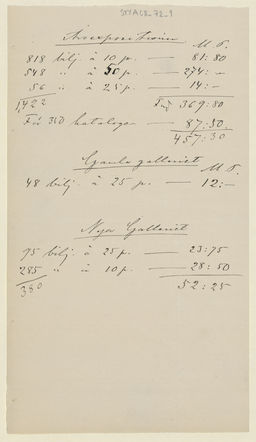 SYYA08_72_1
Årsexpositionen
M P.
818 bilj. à 10 p. — 81:80
548 " à 50 p. — 274:—
56 " à 25 p. — 14:—
1,422 Fmk 369:80
För 350 kataloger — 87:50.
457:30
Gamla galleriet
M P.
48 bilj. à 25 p. — 12:—
Nya Galleriet
95 bilj. à 25 p. — 23:75
285 " à 10 p. — 28:50
380 52:25